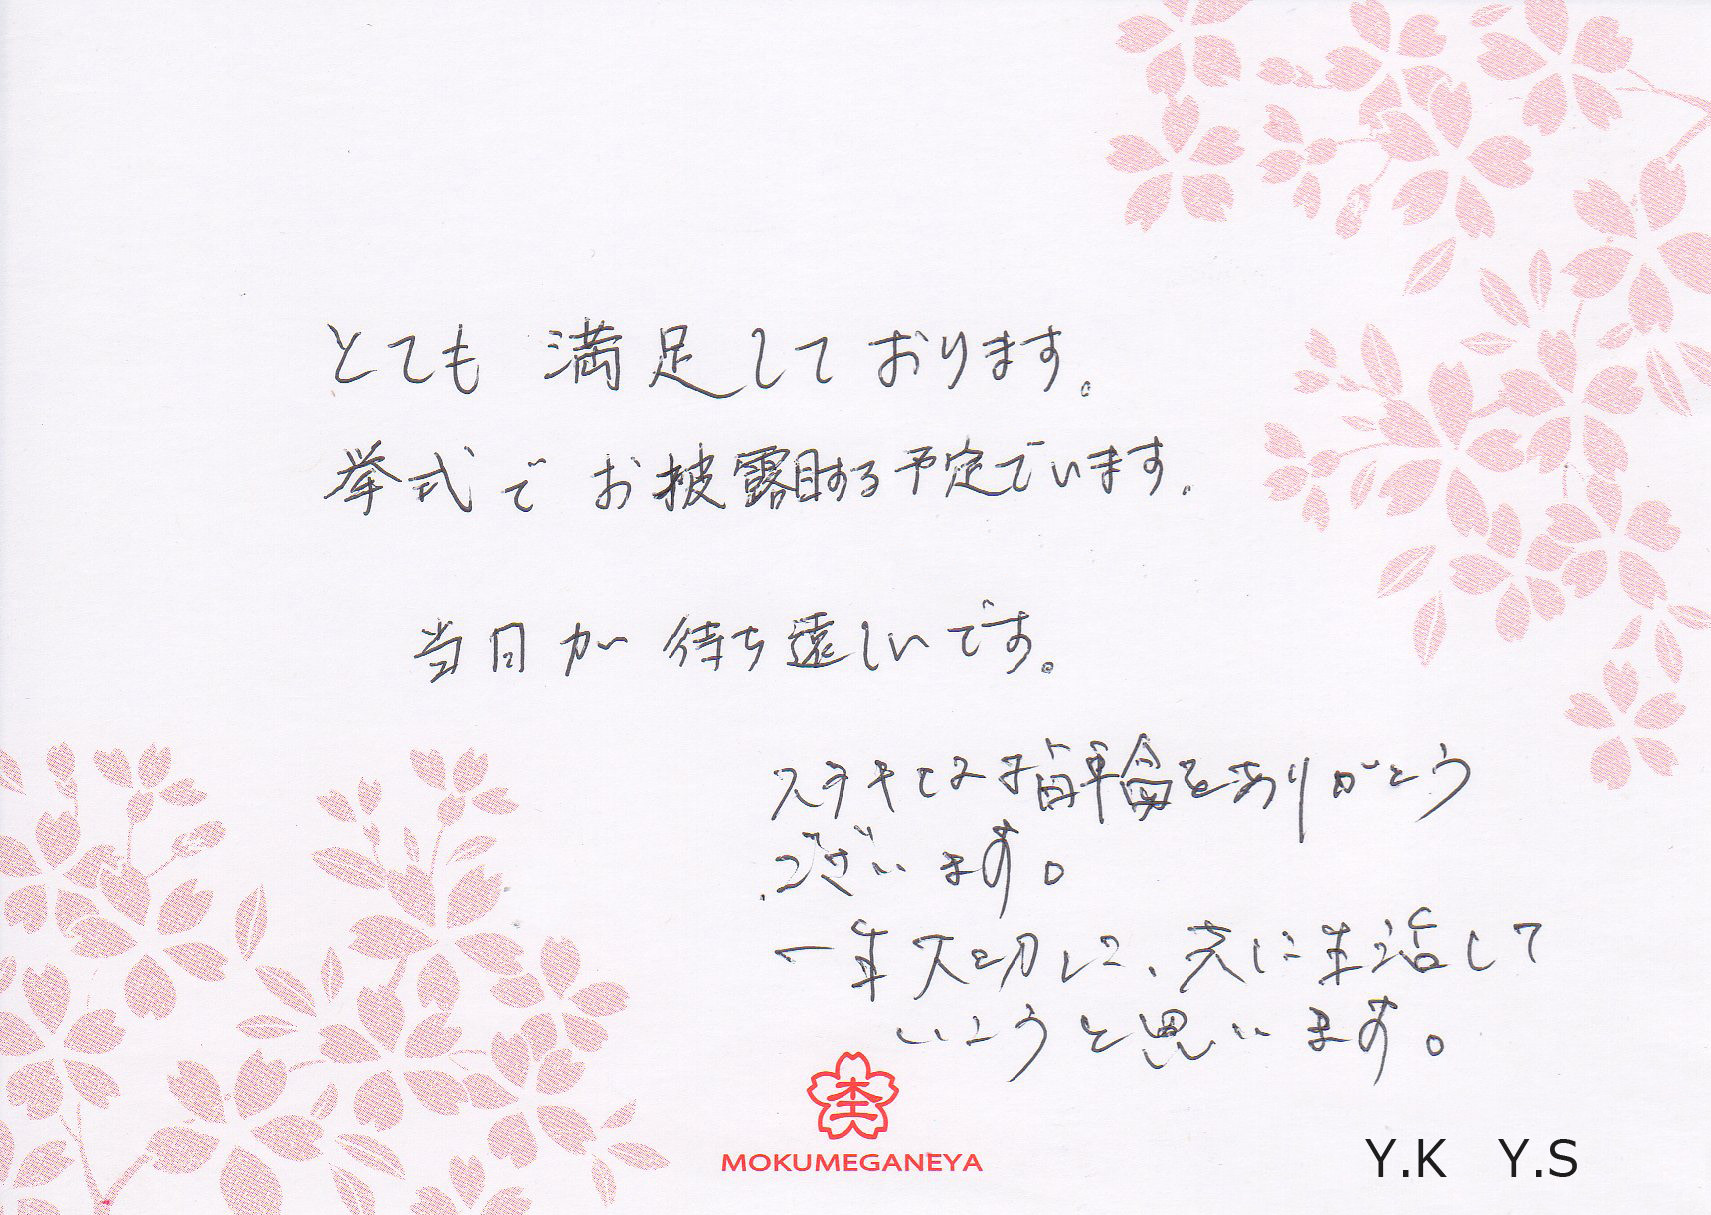 とても 満足しております。
挙式で お披露目する予定でいます。
当日が 待ち遠しいです。
ステキな指輪をありがとう
ございます。
一生大切にし、共に生活して
いこうと思います。
MOKUMEGANEYA
Y.K Y.S